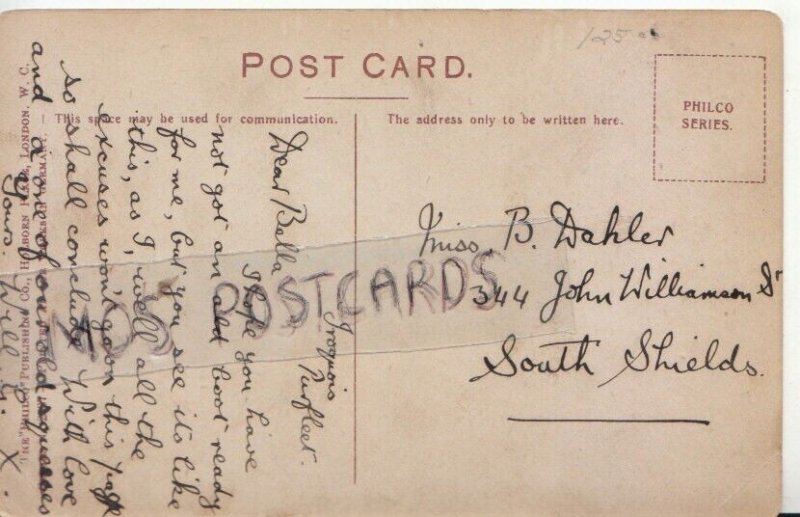 125
POST CARD.
This space may be used for communication.
The address only to be written here.
PHILCO
SERIES.
Iroquois
Purfleet.
Dear Bella
I hope you have
not got an old boot ready
for me, but you see its like
this, as I, well all the
excuses won't go on this page
so shall conclude With love
and a one of our old squeezes
Yours. Will. X.
Miss. B. Dahler
344 John Williamson St
South Shields.
POSTCARDS
THE "PHILCO" PUBLISHING Co., HOLBORN PLACE, LONDON, W. C.